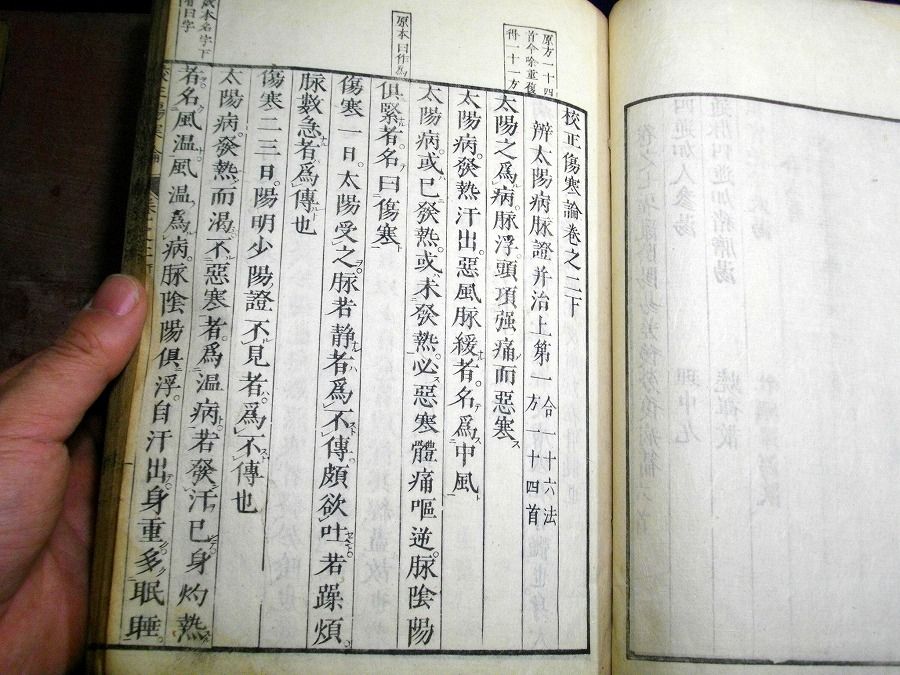 原方一十四
首今除重復
得一十一方
校正傷寒論卷之二下
辨太陽病脉證并治上第一
合一十六法
方一十四首
太陽之爲病脉浮頭項强痛而惡寒
太陽病發熱汗出惡風脉緩者名爲中風
原本曰作爲
太陽病或已發熱或未發熱必惡寒體痛嘔逆脉陰陽
俱緊者名曰傷寒
傷寒一日太陽受之脉若靜者爲不傳頗欲吐若躁煩
脉數急者爲傳也
傷寒二三日陽明少陽證不見者爲不傳也
太陽病發熱而渴不惡寒者爲温病若發汗已身灼熱
本名字下
曰字
者名風温風温爲病脉陰陽俱浮自汗出身重多眠睡
正傷寒論